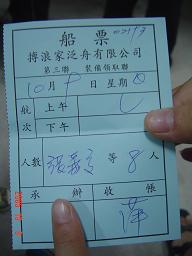 船票
搏浪家泛舟有限公司
第三聯 裝備領取聯
10月9日 星期
航次 上午
下午
人數 張 等8人
承辦 收帳
萍